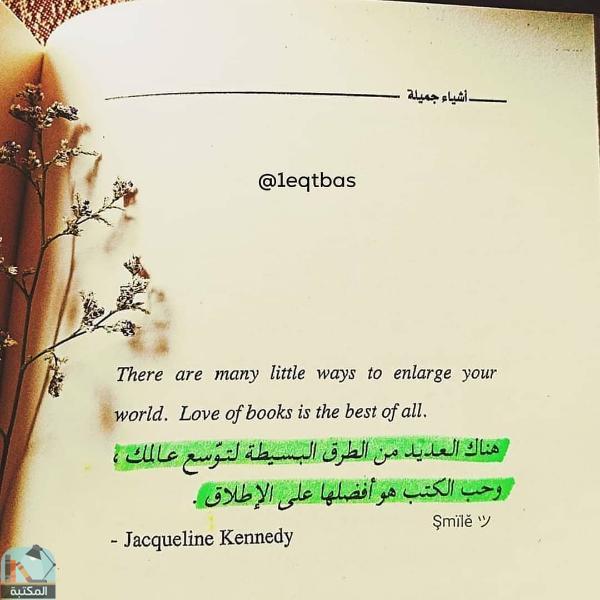 أشياء جميلة
@1eqtbas
There are many little ways to enlarge your
world. Love of books is the best of all.
هناك العديد من الطرق البسيطة لتوّسع عالمك ،
وحب الكتب هو أفضلها على الإطلاق .
Şmïlĕ ツ
- Jacqueline Kennedy
المكتبة